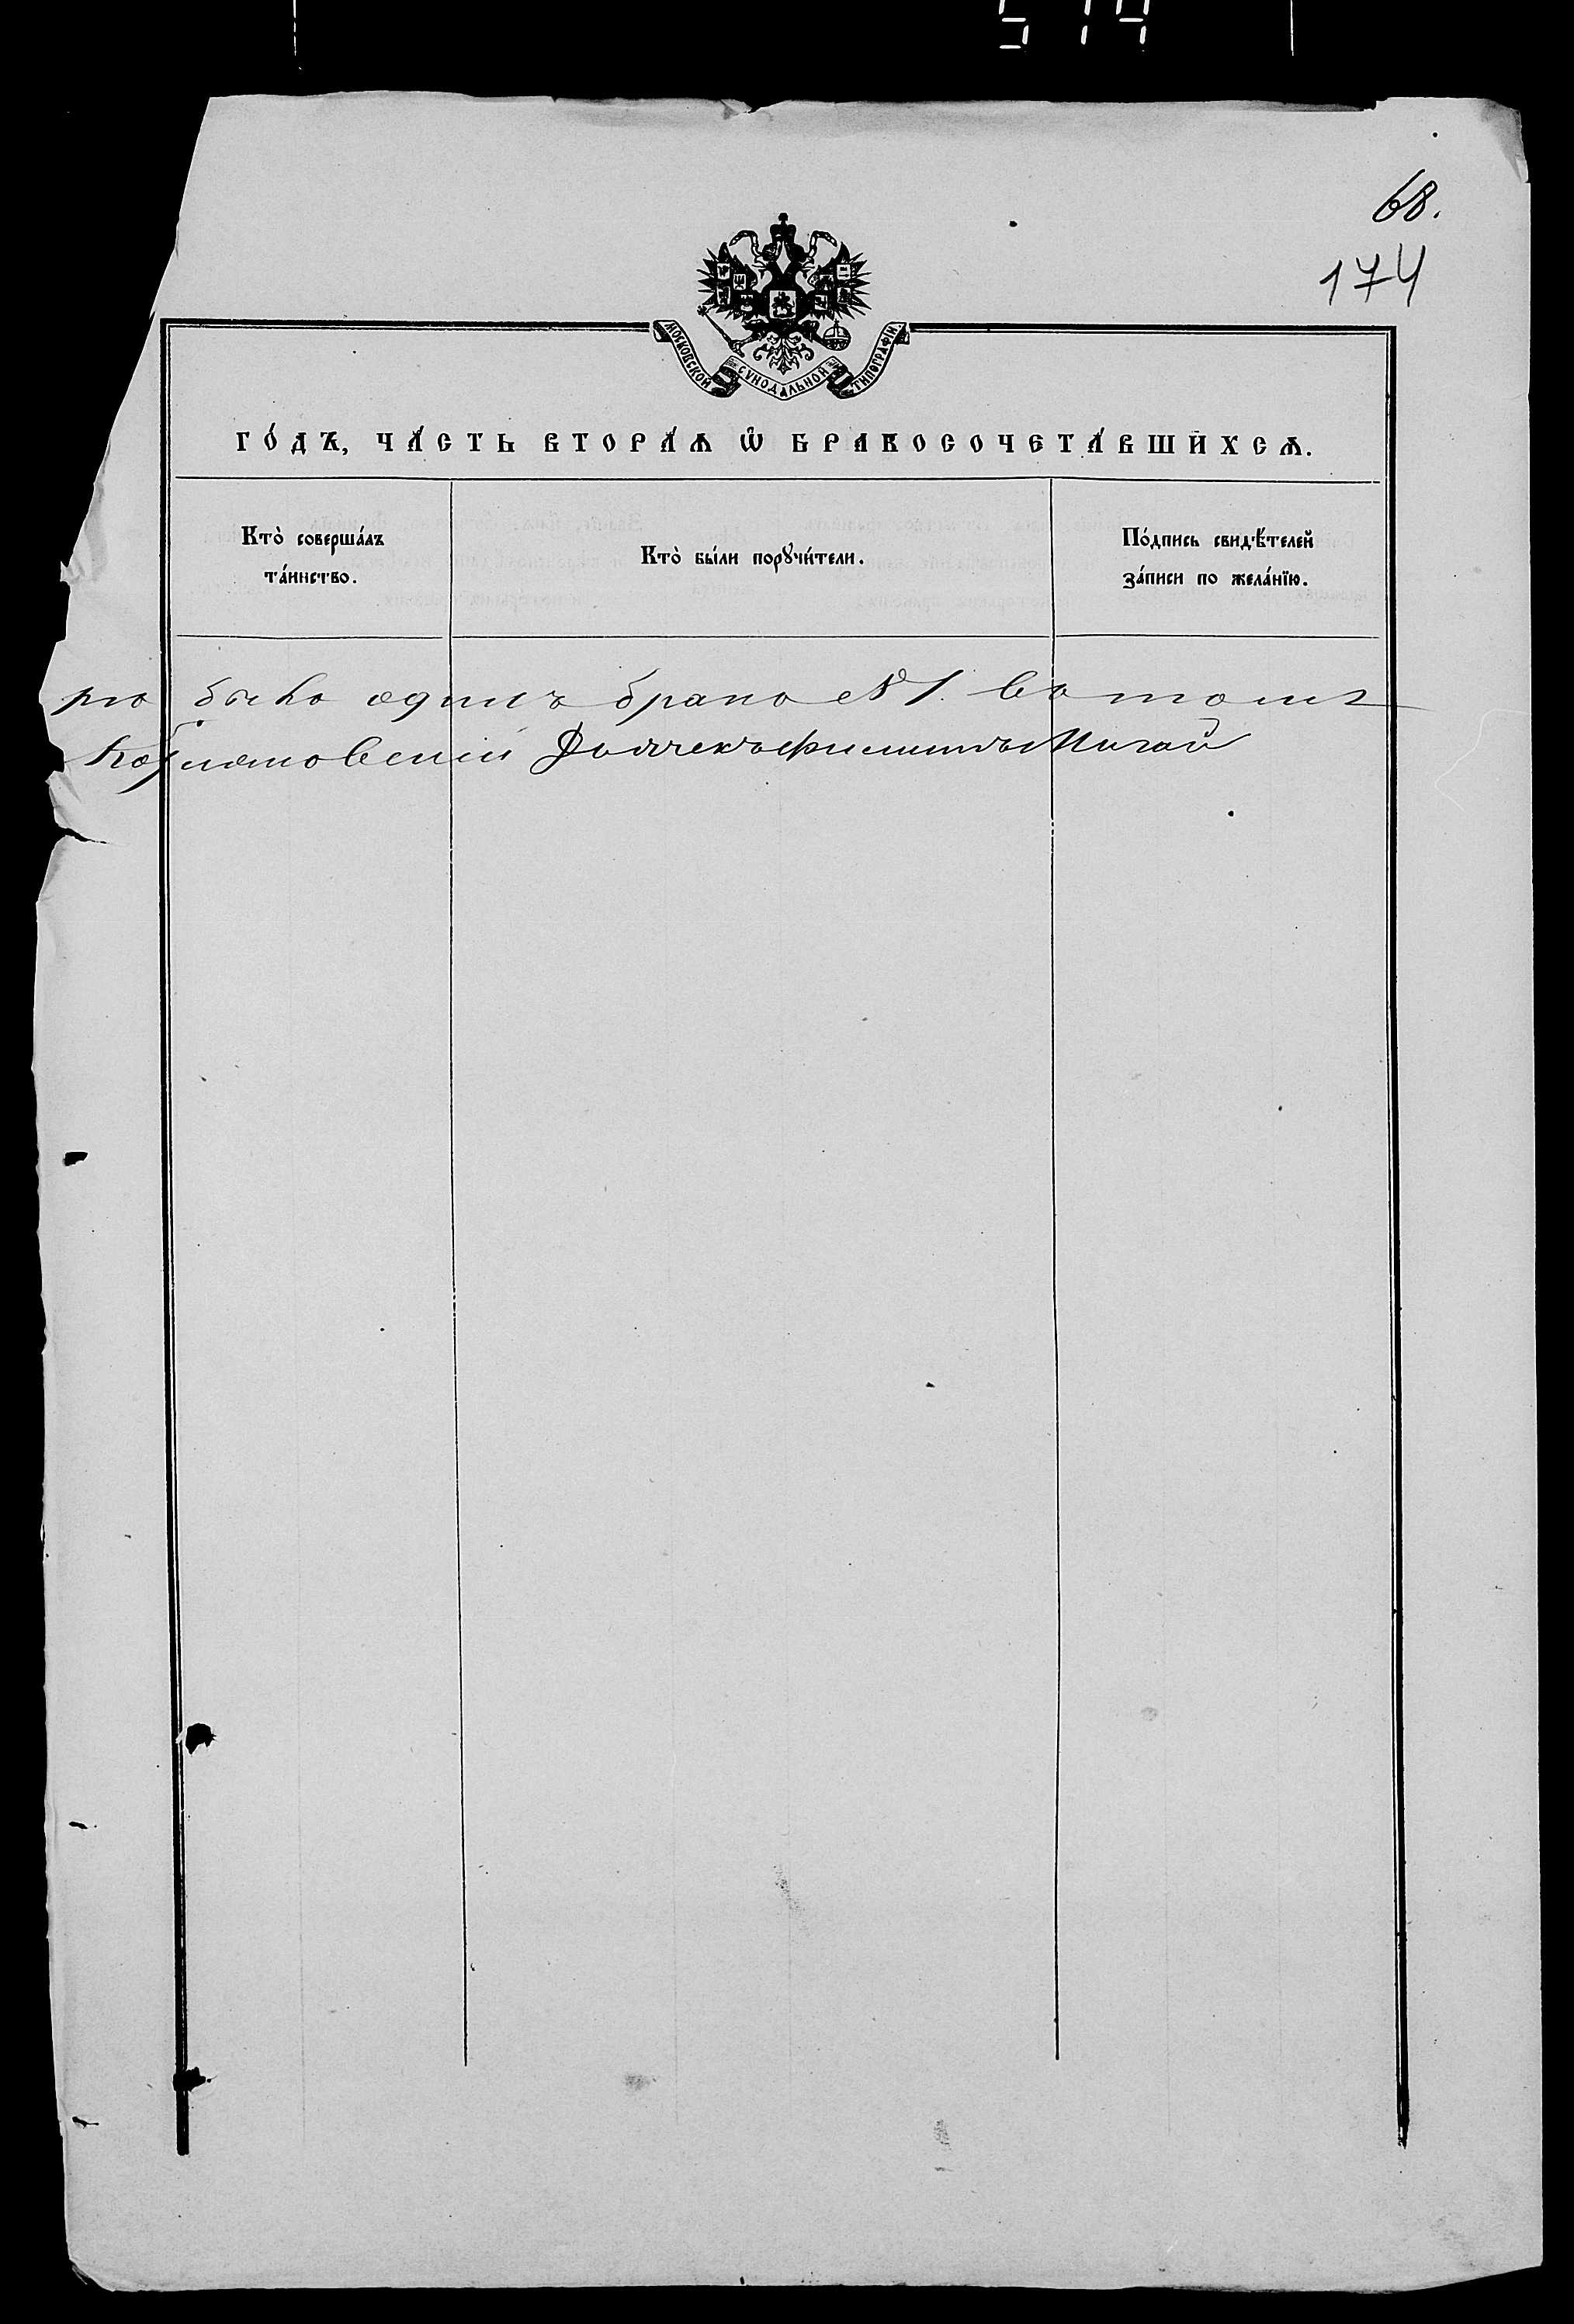 514
68.
174
МОСКОВСКОЙ СѴНОДАЛЬНОЙ ТИПОГРАФІИ.
ГО́ДЪ, ЧА́СТЬ ВТОРА́Ѧ Ѽ БРАКОСОЧЕТА́ВШИХСѦ.
Кто̀ соверша́лъ
та́инство.
Кто̀ бы́ли порꙋчи́тели.
По́дпись свидѣ́телей
за́писи по жела́нїю.
было одинъ брако №1. Въ томъ
Филиппъ